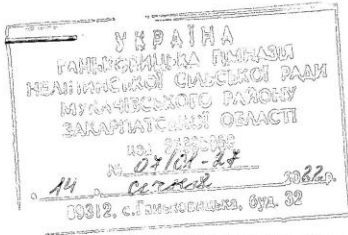 УКРАЇНА
ГАНЬКОВИЦЬКА ГІМНАЗІЯ
НЕЛІПИНСЬКОЇ СІЛЬСЬКОЇ РАДИ
МУКАЧІВСЬКОГО РАЙОНУ
ЗАКАРПАТСЬКОЇ ОБЛАСТІ
№ 07/01-27
14 січня 2022р.
89312, с.Ганьковицька, буд. 32